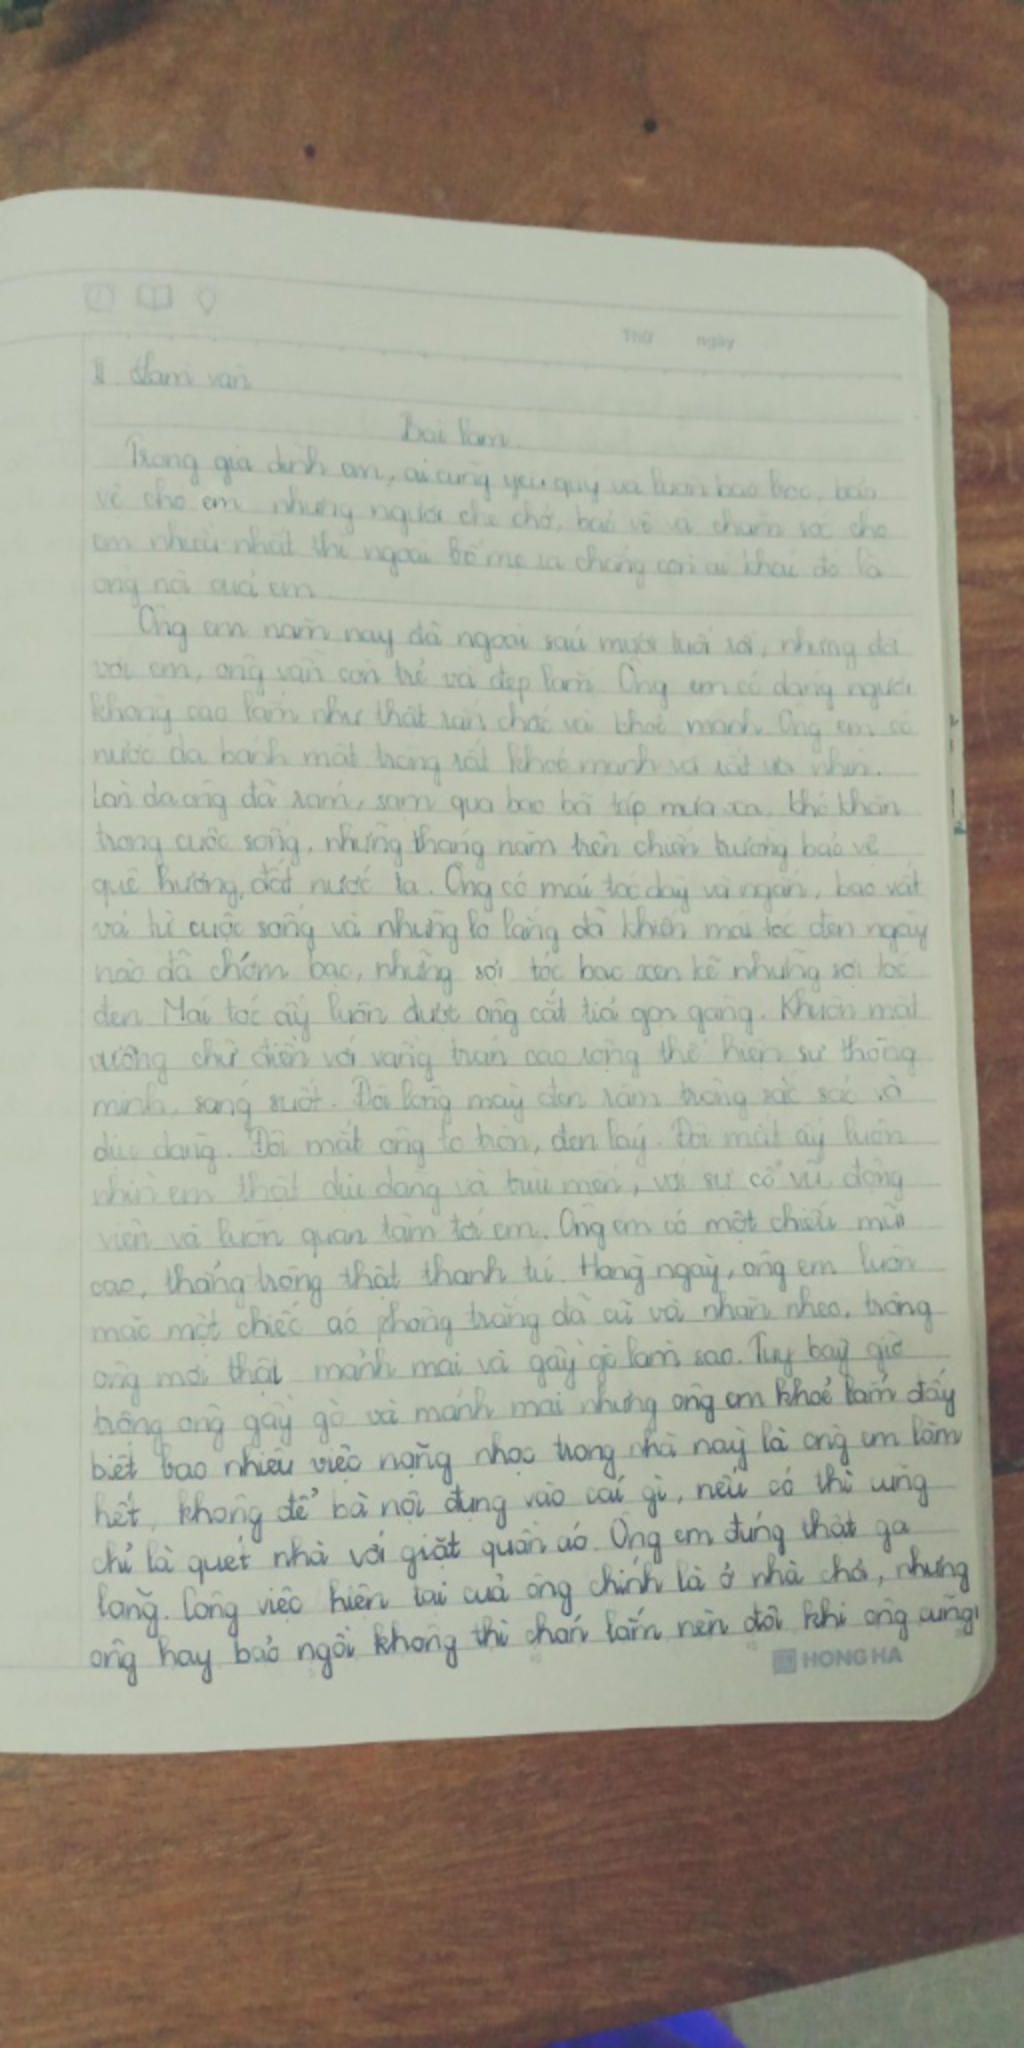 Thứ ngày
II Làm văn
Bài làm
Trong gia đình em, ai cũng yêu quý và luôn bao bọc, bảo
vệ cho em nhưng người che chở, bảo vệ và chăm sóc cho
em nhiều nhất thì ngoài bố mẹ ra chẳng còn ai khác đó là
ông nội của em.
Ông em năm nay đã ngoài sáu mươi tuổi rồi, nhưng đối
với em, ông vẫn còn trẻ và đẹp lắm. Ông em có dáng người
không cao lắm như thật rắn chắc và khoẻ mạnh. Ông em có
nước da bánh mật trông rất khoẻ mạnh và rất ưa nhìn.
Làn da ông đã sạm, sạm qua bao bão táp mưa xa, khó khăn
trong cuộc sống, những tháng năm trên chiến trường bảo vệ
quê hương, đất nước ta. Ông có mái tóc dày và ngắn, bao vất
vả từ cuộc sống và những lo lắng đã khiến mái tóc đen ngày
nào đã chớm bạc, những sợi tóc bạc xen kẽ những sợi tóc
đen. Mái tóc ấy luôn được ông cắt tỉa gọn gàng. Khuôn mặt
vuông chữ điền với vầng trán cao rộng thể hiện sự thông
minh, sáng suốt. Đôi lông mày đen rậm trông sắc sảo và
dịu dàng. Đôi mắt ông to tròn, đen láy. Đôi mắt ấy luôn
nhìn em thật dịu dàng và trìu mến, với sự cổ vũ, động
viên và luôn quan tâm tới em. Ông em có một chiếc mũi
cao, thẳng trông thật thanh tú. Hàng ngày, ông em luôn
mặc một chiếc áo phông trắng đã cũ và nhăn nheo, trông
ông mới thật mảnh mai và gầy gò làm sao. Tuy bây giờ
trông ông gầy gò và mảnh mai nhưng ông em khoẻ lắm đấy
biết bao nhiêu việc nặng nhọc trong nhà này là ông em làm
hết, không để bà nội đụng vào cái gì, nếu có thì cũng
chỉ là quét nhà với giặt quần áo. Ông em đúng thật ga
lăng. Công việc hiện tại của ông chính là ở nhà chơi, nhưng
ông hay bảo ngồi không thì chán lắm nên đôi khi ông cũng
HONG HA